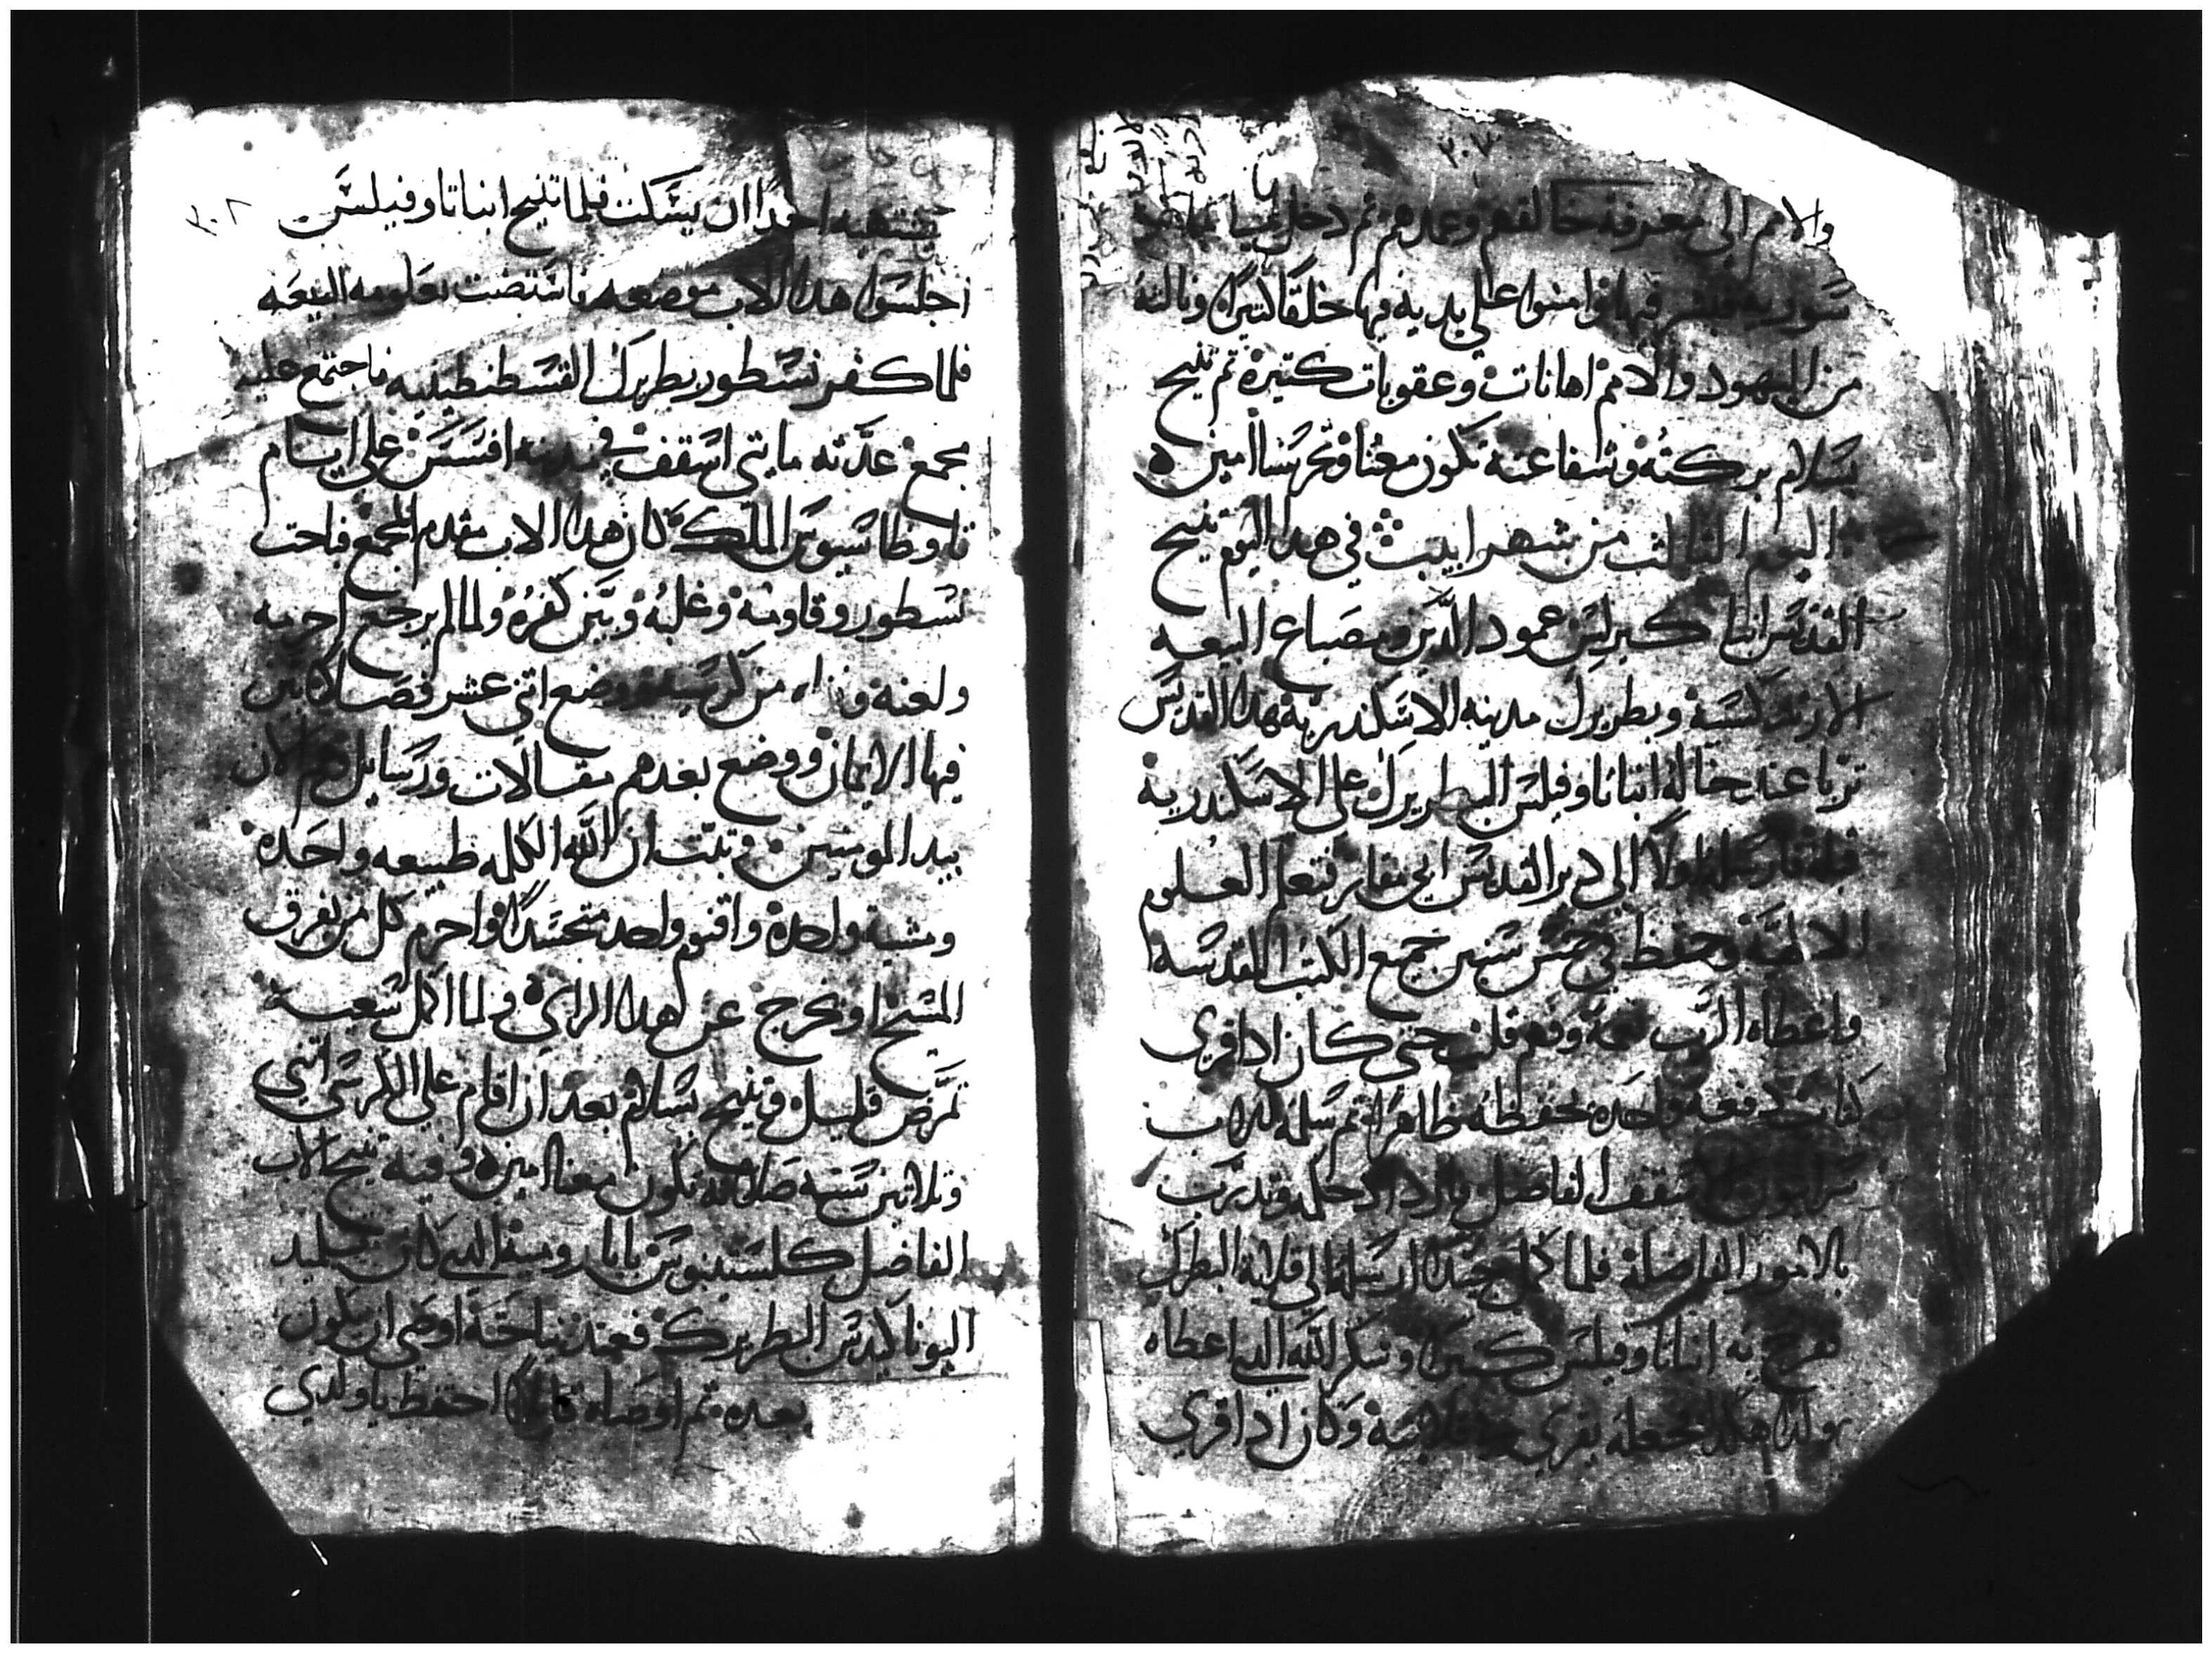 ٣٠٣
والامم الى معرفة خالقهم وعمدهم ثم دخل
سورية فبشر فيها وامنوا على يديه فيها خلقا كتيرا ونالته
من اليهود والامم اهانات وعقوبات كتيرة ثم تنيح
بسلام بركته وشفاعته تكون معنا وتحرسنا امين
اليوم الثالث من شهر ابيب في هدا اليوم تنيح
القديس انبا كيرلس عمود الدين ومصباح البيعه
الارتدكسية وبطريرك مدينه الاسكندرية هدا القديس
تربا عند خاله انبا تاوفيلس البطريرك على الاسكندرية
اولا الى دير القديس ابي مقار فتعلم العلوم
الالهية وحفظ في خمس سنين جميع الكتب المقدسه
واعطاه الرب نعمة وفهم قلب حتى كان ادا قرى
كتاب دفعه واحده يحفظه ظاهرا ثم سلمه للاب
سرابيون الاسقف الفاضل وتدرب
بالامور الفاضلة فلما كمل جيدا ارسله الى قلاية البطرك
ففرح به انبا تاوفيلس كتيرا وشكر الله الدي اعطاه
ولدا هكدا فجعله يقرى وكان ادا قرى
٣٠٢
يشتهيه احدا ان يسكت فلما تنيح انبا تاوفيلس
اجلسوا هدا الاب موضعه فاستضت بعلومه البيعه
فلما كفر نسطور بطريرك القسطنطينيه فاجتمع عليه
مجمع عدته مايتي اسقف في مدينة افسس على ايام
تاوظاسيوس الملك كان هدا الاب مقدم المجمع فباحت
نسطور وقاومه وغلبه وبين كفره ولما لم يرجع احرمه
ولعنه ونفاه من كرسيه ووضع اتني عشر فصلا بين
فيها الايمان ووضع بعدهم مقالات ورسايل هم الان
بيد المومنين وتبت ان الله الكلمه طبيعه واحده
ومشية واحدة واقنوم واحد متجسدا واحرم كل من يفرق
المسيح او يخرج عن هدا الراى ولما اكمل سعيه
تمرض قليل وتنيح بسلام بعد ان اقام على الكرسي اتني
وتلاتين سنه صلاته تكون معنا امين وفيه تنيح الاب
الفاضل كلستينوس بابا رومية الدي كان تلميد
اليوناكيدس البطريرك فعند نياحته اوصى ان يكون
بعده ثم اوصاه قايلا احفظ ياولدي